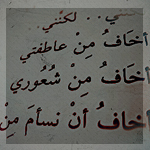 لكنني ..
أخَافُ مِنْ عاطفتي
أخَافُ مِنْ شُعُوري
أخافُ أنْ نسأمَ مِنْ